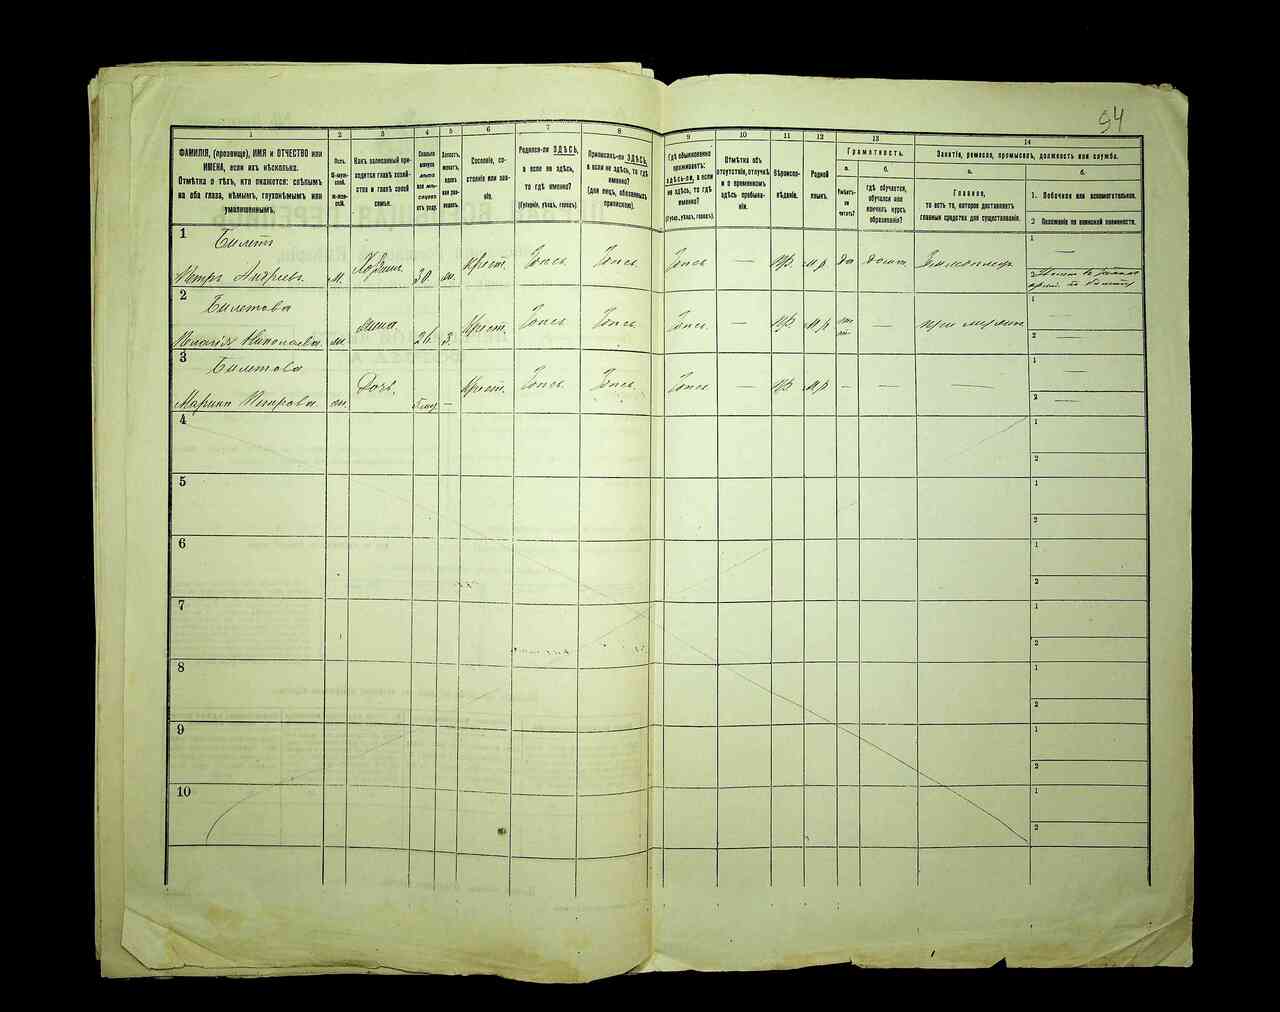 94
1
2
3
4
5
6
7
8
9
10
11
12
13
14
ФАМИЛІЯ, (прозвище), ИМЯ и ОТЧЕСТВО или
ИМЕНА, если ихъ нѣсколько.
Отмѣтка о тѣхъ, кто окажется: слѣпымъ
на оба глаза, нѣмымъ, глухонѣмымъ или
умалишеннымъ.
Полъ.
М-муж-
ской.
Ж-жен-
скій.
Какъ записанный при-
ходится главѣ хозяй-
ства и главѣ своей
семьи.
Сколько
минуло
лѣтъ
или мѣ-
сяцевъ
отъ роду.
Холостъ,
женатъ,
вдовъ
или раз-
веденъ.
Сословіе, со-
стояніе или зва-
ніе.
Родился-ли ЗДѢСЬ,
а если не здѣсь,
то гдѣ именно?
(Губернія, уѣздъ, городъ).
Приписанъ-ли ЗДѢСЬ,
а если не здѣсь, то гдѣ
именно?
(для лицъ, обязанныхъ
припискою).
Гдѣ обыкновенно
проживаетъ:
здѣсь-ли, а если
не здѣсь, то гдѣ
именно?
(Губ., уѣздъ, городъ).
Отмѣтка объ
отсутствіи, отлучкѣ
и о временномъ
здѣсь пребыва-
ніи.
Вѣроиспо-
вѣданіе.
Родной
языкъ.
Грамотность.
а.
Умѣетъ-
ли
читать?
б.
гдѣ обучается,
обучался или
кончилъ курсъ
образованія?
Занятіе, ремесло, промыселъ, должность или служба.
а.
Главное,
то есть то, которое доставляетъ
главныя средства для существованія.
б.
1. Побочное или вспомогательное.
2 Положеніе по воинской повинности.
1
Билетъ
Петръ Андреевъ. м. Хозяинъ 30. ж. Крест. Здѣсь. Здѣсь. Здѣсь — Пр. м.р. да Земледѣл.
1 —
2
2
Билетова
Пелагея Николаева. ж. жена. 26. З. Крест. Здѣсь Здѣсь. Здѣсь. — Пр. м.р. нѣтъ — при мужѣ
1 —
2 —
3
Билетова
Марина Петрова. ж. Дочь. — Крест. Здѣсь. Здѣсь. Здѣсь — Пр. м.р. — — —
1 —
2 —
4
1
2
5
1
2
6
1
2
7
1
2
8
1
2
9
1
2
10
1
2